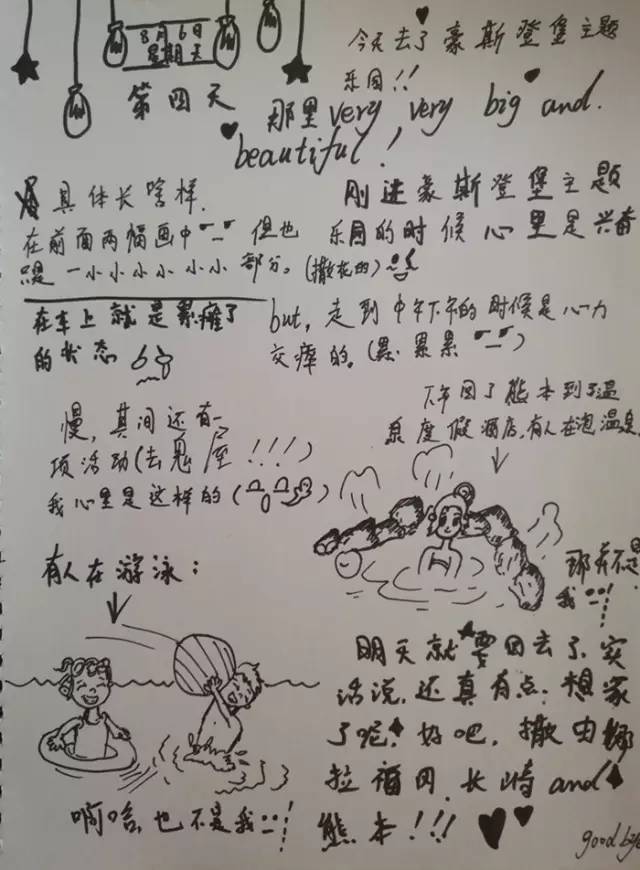 8月6日
星期天
第四天
今天去了豪斯登堡主题
乐园!!
那里very, very big and.
beautiful!
具体长啥样.
在前面两幅画中 但也
是一小小小小小部分。(撒花的)
刚进豪斯登堡主题
乐园的时候心里是兴奋
but, 走到中午下午的时候是心力
交瘁的。(累累累 )
在车上就是累瘫了
的状态
慢, 其间还有一
项活动(去鬼屋!!!)
我心里是这样的(
下午回了熊本到了温
泉度假酒店,有人在泡温泉
那并不是
我!
有人在游泳:
啊哈,也不是我!
明天就要回去了,实
话说,还真有点想家
了呢!好吧,撒由娜
拉福冈.长崎and
熊本!!!
good bye